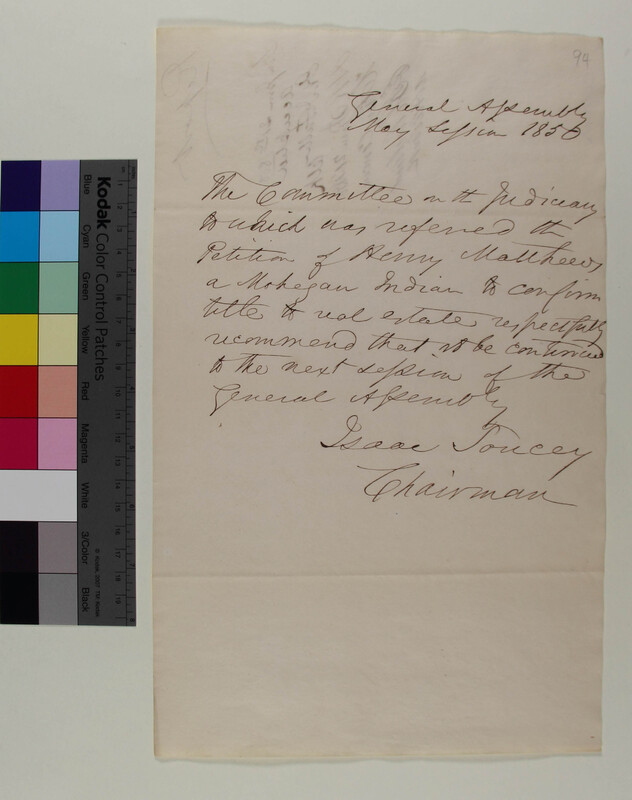 94
General Assembly
May Session 1850
The Committee on th Judiciary
to which was referred th
Petition of Henry Matthews
a Mohegan Indian to confirm
title to real estate respectfully
recommend that it be continued
to the next session of the
General Assembly
Isaac Toucey
Chairman
Kodak Color Control Patches
Blue
Cyan
Green
Yellow
Red
Magenta
White
3/Color
Black
© Kodak, 2007 TM: Kodak